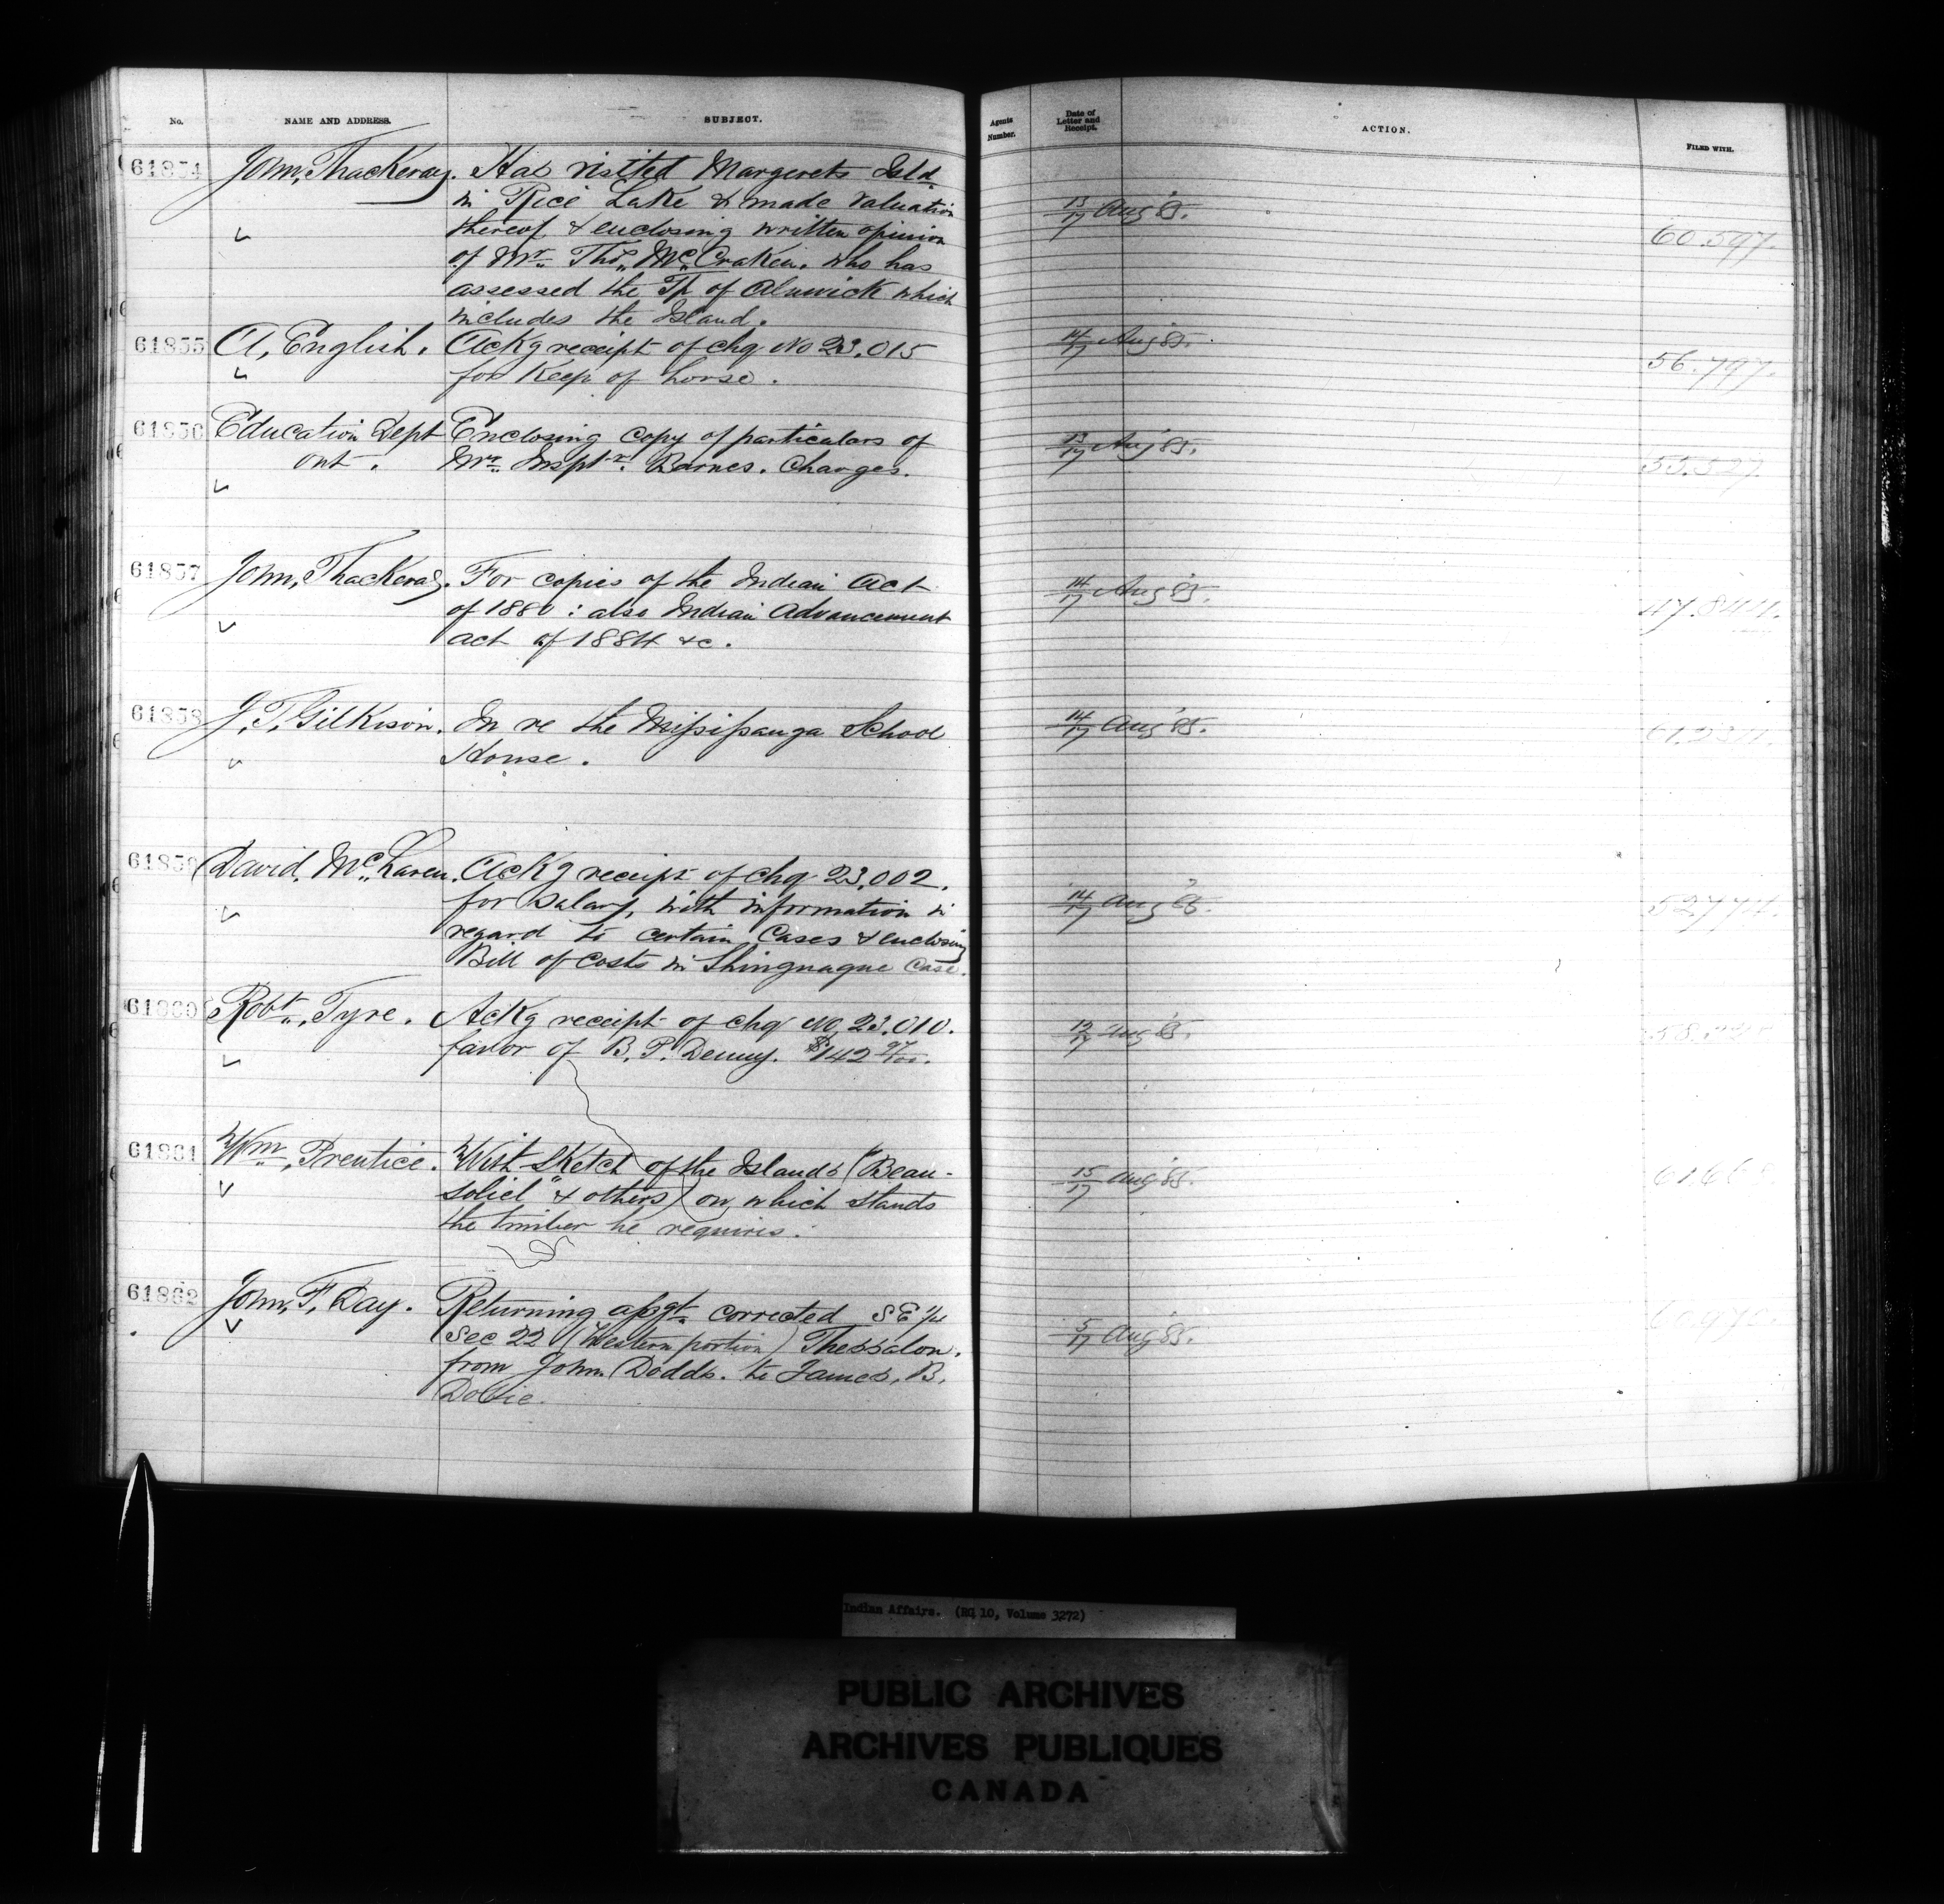 No. NAME AND ADDRESS. SUBJECT. Agents Number. Date of Letter and Receipt. ACTION. FILED WITH.
61854 John, Thackeray. Has visited Margerets Isld
in Rice Lake & made valuation 13/17 Aug 85.
thereof & enclosing written opinion 60.597.
of Mr. Thos. McCraken. who has
assessed the Tp of Alnwick which
includes the Island.
61855 A, English. Ackg receipt of chq No 23.015 14/17 Aug 85.
for Keep of horse. 56.797.
61856 Education Dept Enclosing copy of particulars of 13/17 Aug 85.
Ont. Mr. Inspt.r. Barnes. Charges. 55.527.
61857 John, Thackeray. For copies of the Indian Act 14/17 Aug 85.
of 1880 : also Indian Advancement 47.844.
act of 1884 &c.
61858 J, T, Gilkison. In re the Missisauga School 14/17 Aug 85.
House.
61859 David, McLaren. Ackg receipt of chq 23.002.
for salary, with information in 14/17 Aug 85. 52774.
regard to certain Cases & enclosing
Bill of costs in Shinguaque Case.
61860 Robt, Tyre. Ackg receipt of chq No 23.010. 12/17 Aug 85.
favor of B. P. Denny. $142 97/100.
61861 Wm, Prentice. With Sketch of the Islands ("Beau-
soliel" & others) on which stands 15/17 Aug 85.
the timber he requires.
61862 John, F, Day. Returning assgt. corrected S E 1/4
Sec 22 (Western portion) Thessalon. 5/17 Aug 85.
from John Dodds. to James, B,
Dobie.
Indian Affairs. (RG 10, Volume 3272)
PUBLIC ARCHIVES
ARCHIVES PUBLIQUES
CANADA